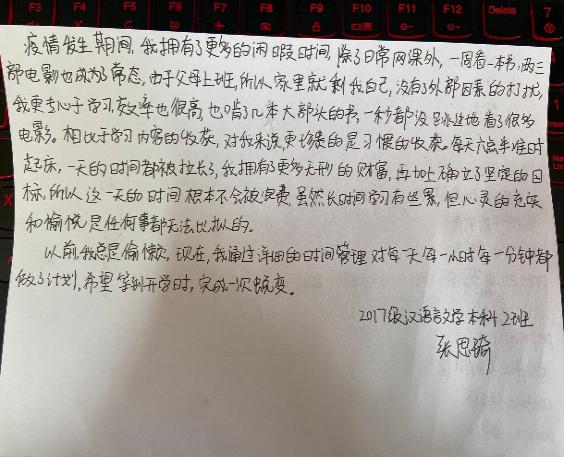 F3 F4 F5 F6 F7 F8 F9 F10 F11 F12 Delete 7
疫情发生期间,我拥有了更多的闲暇时间,除了日常网课外,一周看一本书,两三
部电影也成为了常态,由于父母上班,所以家里就剩我自己,没有了外部因素的打扰,
我更专心于学习,效率也很高,也啃了几类大部头的书,一秒都没
电影。相比于学习内容的收获,对我来说更珍贵的是习惯的收获。每天六点半准时
起床,一天的时间都被拉长了,我拥有了更多无形的财富,再加上确立了坚定的目
标,所以这一天的时间根本不会被浪费,虽然长时间学习有些累,但心灵的充实
和愉悦是任何事都无法比拟的。
以前,我总是偷懒,现在,我通过详细的时间管理对每一天每一小时每一分钟都
做了计划,希望等到开学时,完成一次蜕变。
2017级汉语言文学本科2班
张思琦